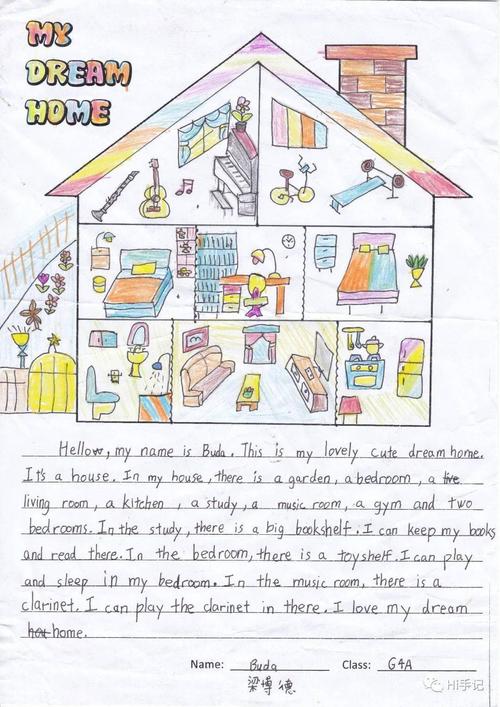 MY
DREAM
HOME
Hellow, my name is Buda. This is my lovely cute dream home.
It's a house. In my house, there is a garden, a bedroom, a live
living room, a kitchen, a study, a music room, a gym and two
bedrooms. In the study, there is a big bookshelf. I can keep my books
and read there. In the bedroom, there is a toyshelf. I can play
and sleep in my bedroom. In the music room, there is a
clarinet. I can play the clarinet in there. I love my dream
home.
Name: Buda Class: G4A
梁博德
Hi手记